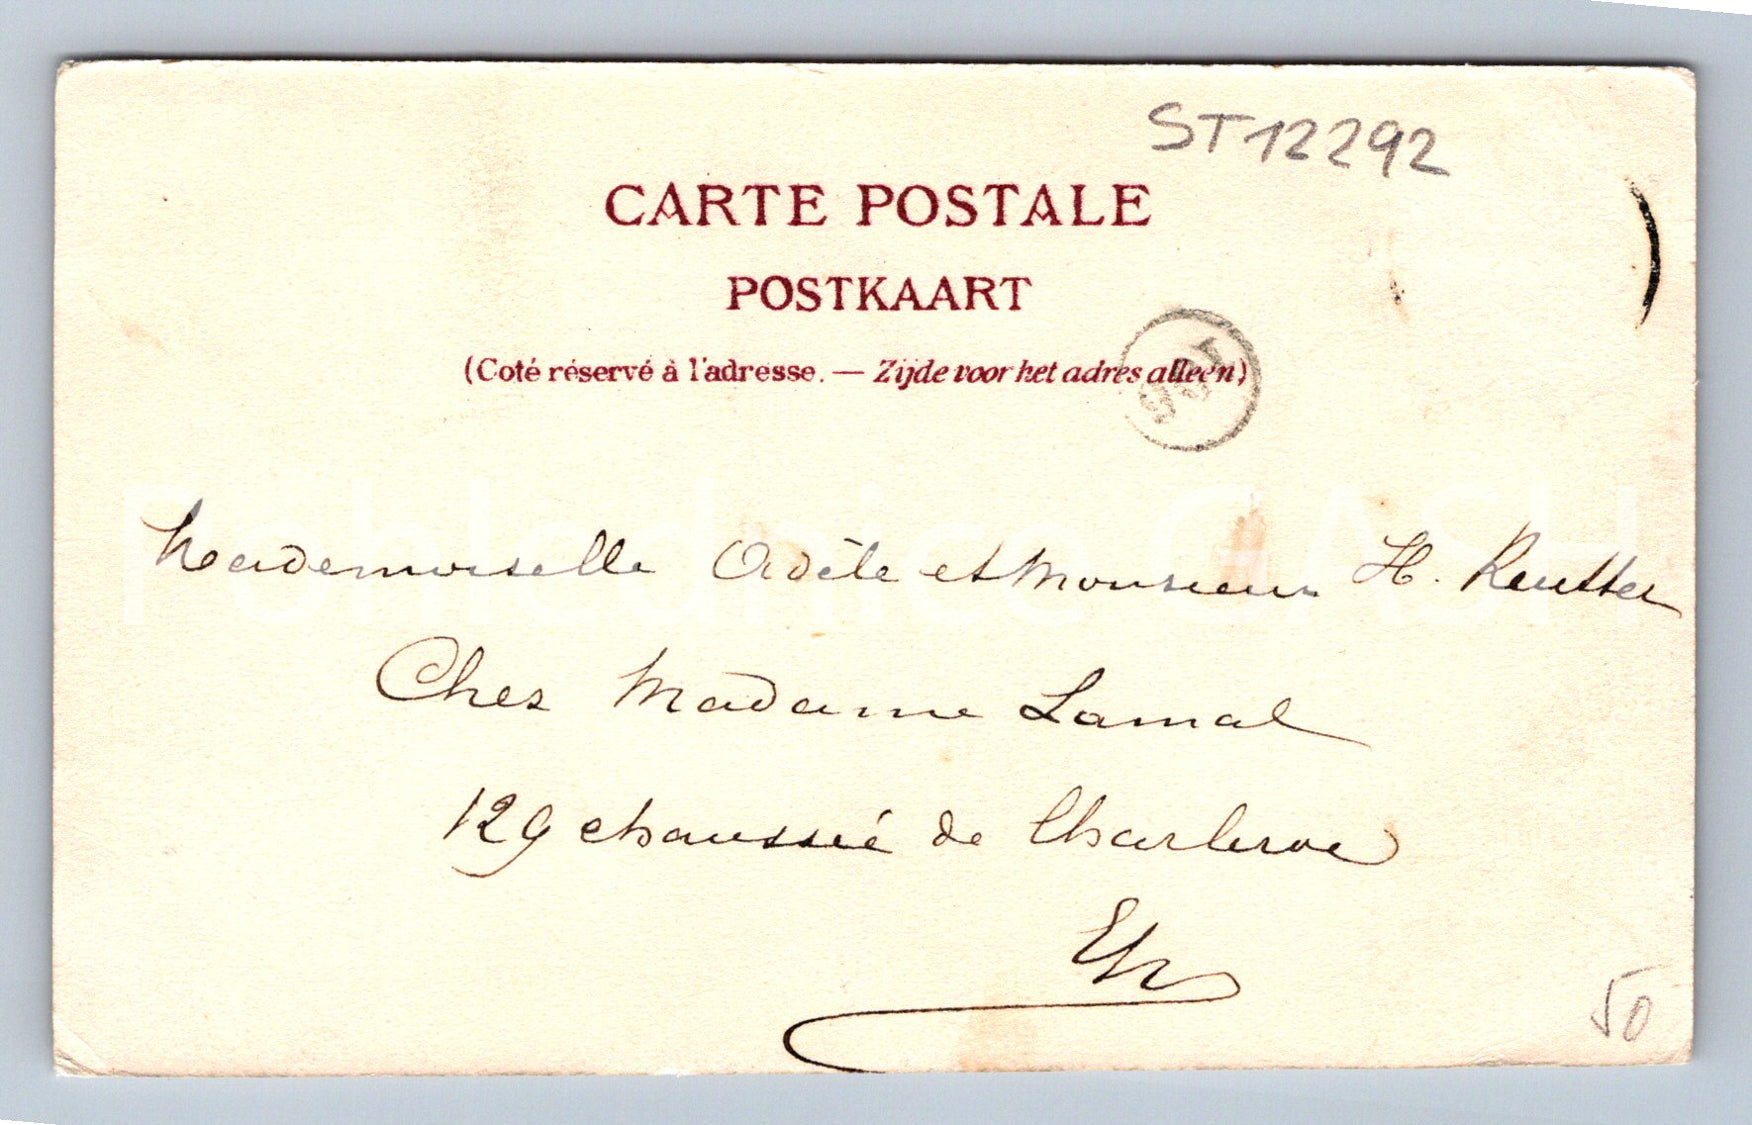 ST12292
CARTE POSTALE
POSTKAART
(Coté réservé à l'adresse. — Zijde voor het adres alleen)
Mademoiselle Adèle et Monsieur H. Reutter
Chez Madame Lamal
129 chaussée de Charleroi
E/V
50
Pohlednice CASH